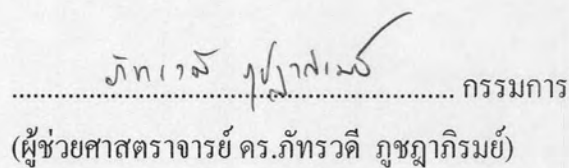 ภัทรวดี ภูชฎาภิรมย์
.................................................................. กรรมการ
(ผู้ช่วยศาสตราจารย์ ดร.ภัทรวดี ภูชฎาภิรมย์)